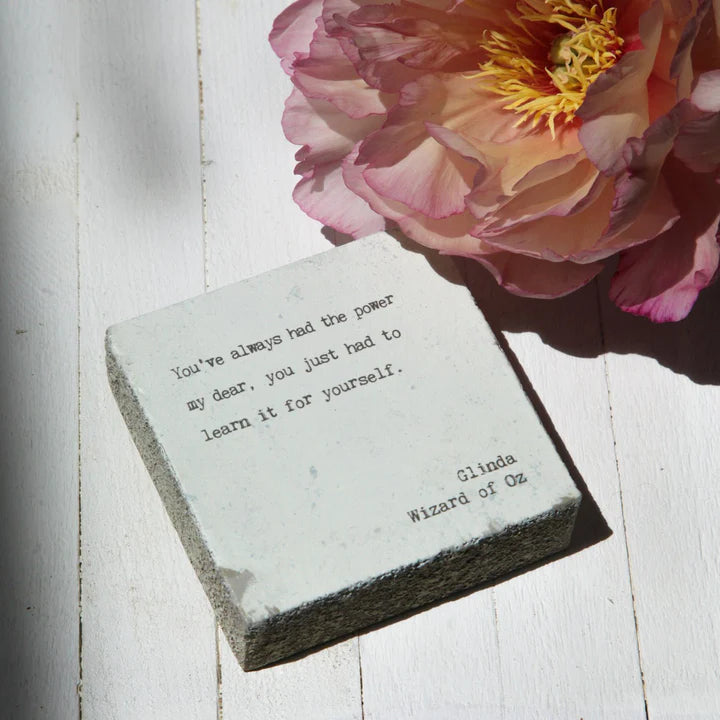 You've always had the power
my dear, you just had to
learn it for yourself.
Glinda
Wizard of Oz